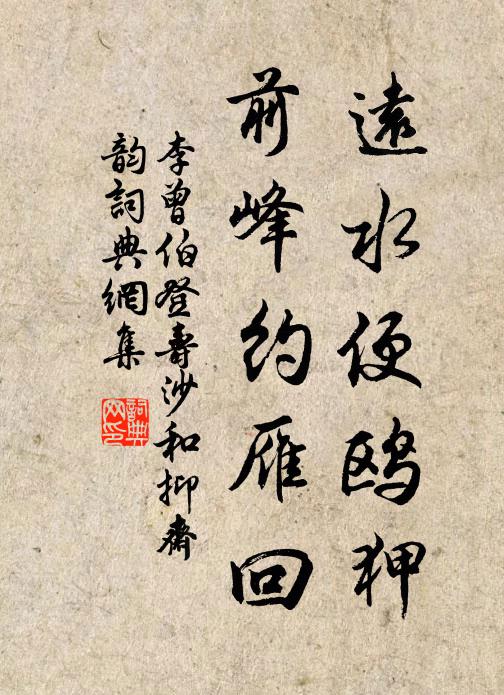 遠水便鷗狎
前峰約雁回
李曾伯登壽沙和抑齋
韵詞典網集
詞典網印